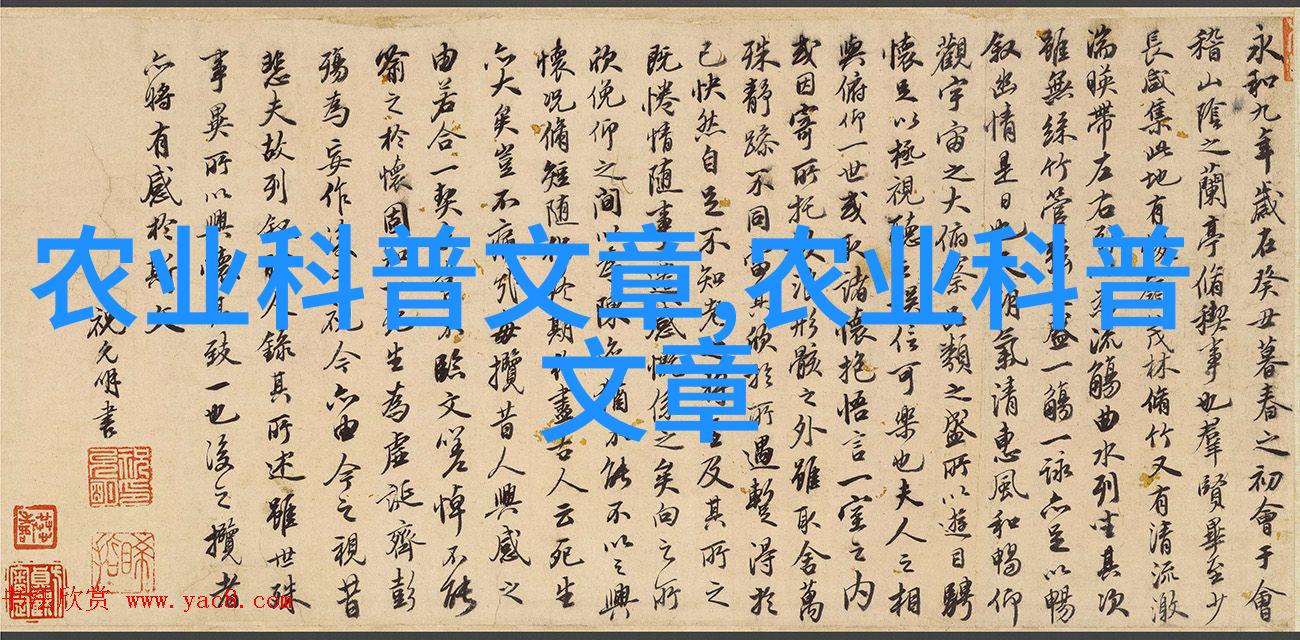 农业科普文章,农业科普
文章
永和九年歲在癸丑暮春之初會于會
稽山陰之蘭亭脩稧事也羣賢畢至少
長咸集此地有茂林脩竹又有清流激
湍暎帶左右流觴曲水列坐其次
雖無絲竹管盛一觴一詠亦足以暢
叙幽情是日也朗氣清惠風和暢仰
觀宇宙之大俯察品類之盛所以遊目騁
懷足以極視聽娱信可樂也夫人之相
與俯仰一世或取諸懷抱悟言一室之內
或因寄所托浪形骸之外雖取舍萬
殊静躁不同當其欣於所遇暫得於
己快然自足不知老將至及其所之
既惓情随事感慨係之矣向之所
欣俛仰之間以陳不能不以之興
懷況脩短随終期於盡古人云死生
亦大矣豈不痛每攬昔人興感之
由若合一契不臨文嗟悼不能
喻之於懷固知生為虛誕齊彭
殤為妄作後視今亦由今之視昔
悲夫故列叙人錄其所述雖世殊
事異所以興懷其致一也後之攬者
亦將有感於斯文
祝允明書
书法欣赏 www.yac8.com